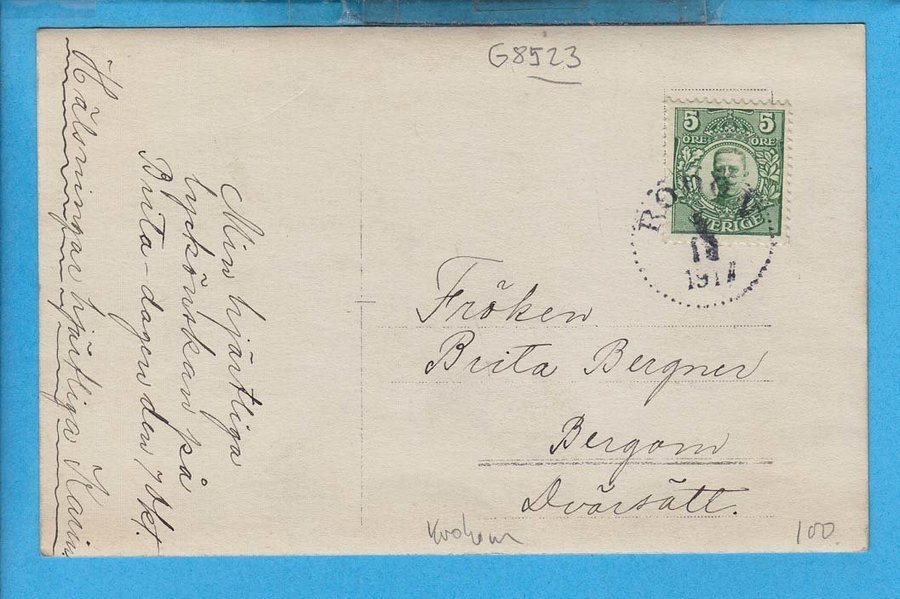 G8523
5 5
ÖRE ÖRE
SVERIGE
1917
Min hjärtliga
lyckönskan på
Brita-dagen den 7 Okt.
Hälsningar hjärtliga Karin
Fröken
Brita Bergner
Bergom
Dvärsätt.
100